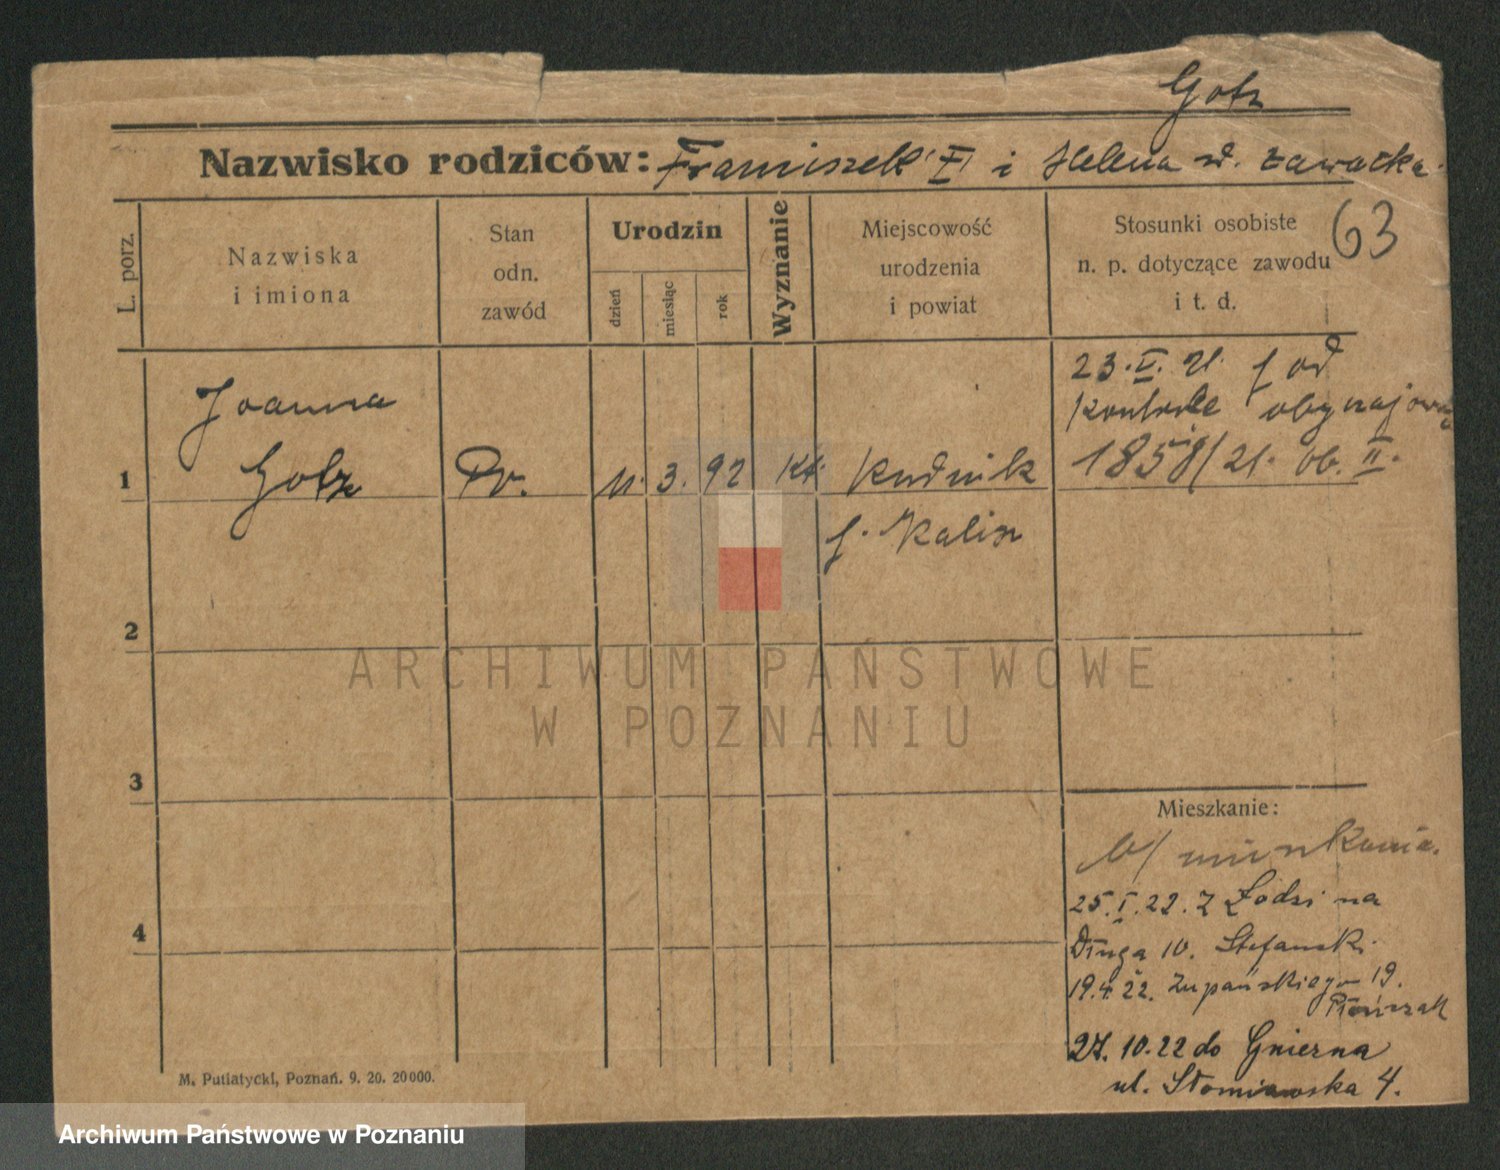 Gotz
Nazwisko rodziców: Franciszek i Helena zd. Zawacka
63
L. porz.
Nazwiska
i imiona
Stan
odn.
zawód
Urodzin
dzień
miesiąc
rok
Wyznanie
Miejscowość
urodzenia
i powiat
Stosunki osobiste
n. p. dotyczące zawodu
i t. d.
1
Joanna
Gotz
11. 3. 92 kt.
Rudnik
p. Kalisz
23. V. 21. od
1858/21. ob. II.
2
3
4
Mieszkanie:
b/ mieszkania.
25. I. 22. z Łodzi na
Długa 10. Stefanski
19.4.22. Żupańskiego 19.
27. 10. 22 do Gniezna
ul. 4.
M. Putiatycki, Poznań. 9. 20. 20000.
ARCHIWUM PAŃSTWOWE
W POZNANIU
Archiwum Państwowe w Poznaniu